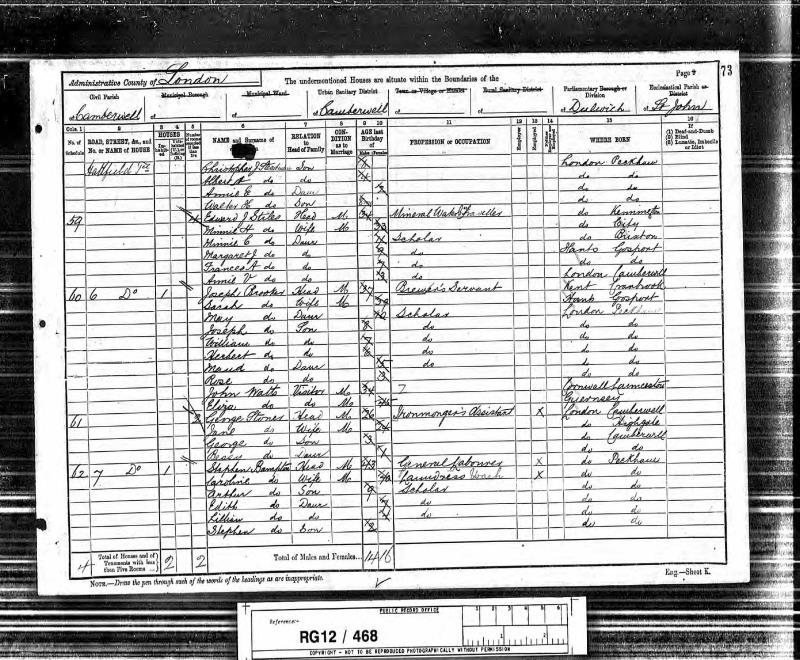 Administrative County of London
The undermentioned Houses are situate within the Boundaries of the
Page 73
Civil Parish
Municipal Borough
Municipal Ward
Urban Sanitary District
Town or Village or Hamlet
Rural Sanitary District
Parliamentary Borough or Division
Ecclesiastical Parish or District
of Camberwell of of Camberwell of of of Dulwich of St John
Cols. 1 2 3 4 5 6 7 8 9 10 11 12 13 14 15 16
No. of Schedule
ROAD, STREET, &c., and No. or NAME of HOUSE
HOUSES
NAME and Surname of
RELATION to Head of Family
CONDITION as to Marriage
AGE last Birthday of
Males Females
PROFESSION or OCCUPATION
Employer
Employed
WHERE BORN
If (1) Deaf-and-Dumb (2) Blind (3) Lunatic, Imbecile or Idiot
Hatfield Son London Peckham
Albert do do do do
Annie E do Daur do do
Walter H do Son do do
59 Edward J Stiles Head M Mineral Water Traveller do Kennington
Minnie H do Wife M do City
Minnie C do Daur Scholar do Brixton
Margaret J do do do Hants Gosport
Frances A do do do do do
Annie V do do London Camberwell
60 6 Do 1 Joseph Brooker Head M 37 Brewer's Servant Kent Cranbrook
Sarah do Wife M Hants Gosport
May do Daur Scholar London
Joseph do Son do do do
William do do do do do
Herbert do do do do do
Maud do Daur do do do
Rose do do do do
John Watts Visitor M Cornwall Launceston
Eliza do do M Guernsey
61 George Stones Head M 26 Ironmonger's Assistant X London Camberwell
Jane do Wife M 24 do Highgate
George do Son 3 do Camberwell
Bessy do Daur 1 do do
62 7 Do 1 Stephen Bampton Head M 43 General Labourer X do Peckham
Caroline do Wife M 40 Laundress Wash X do do
Arthur do Son 9 Scholar do do
Edith do Daur do do do
Lillian do do do do do
Stephen do Son 2 do do
4 Total of Houses and of Tenements with less than Five Rooms 2 2 Total of Males and Females... 14 16
NOTE.—Draw the pen through such of the words of the headings as are inappropriate.
Eng.—Sheet K.
PUBLIC RECORD OFFICE
Reference:-
1 2 3 4 5 6
RG12 / 468
1 2
COPYRIGHT - NOT TO BE REPRODUCED PHOTOGRAPHICALLY WITHOUT PERMISSION